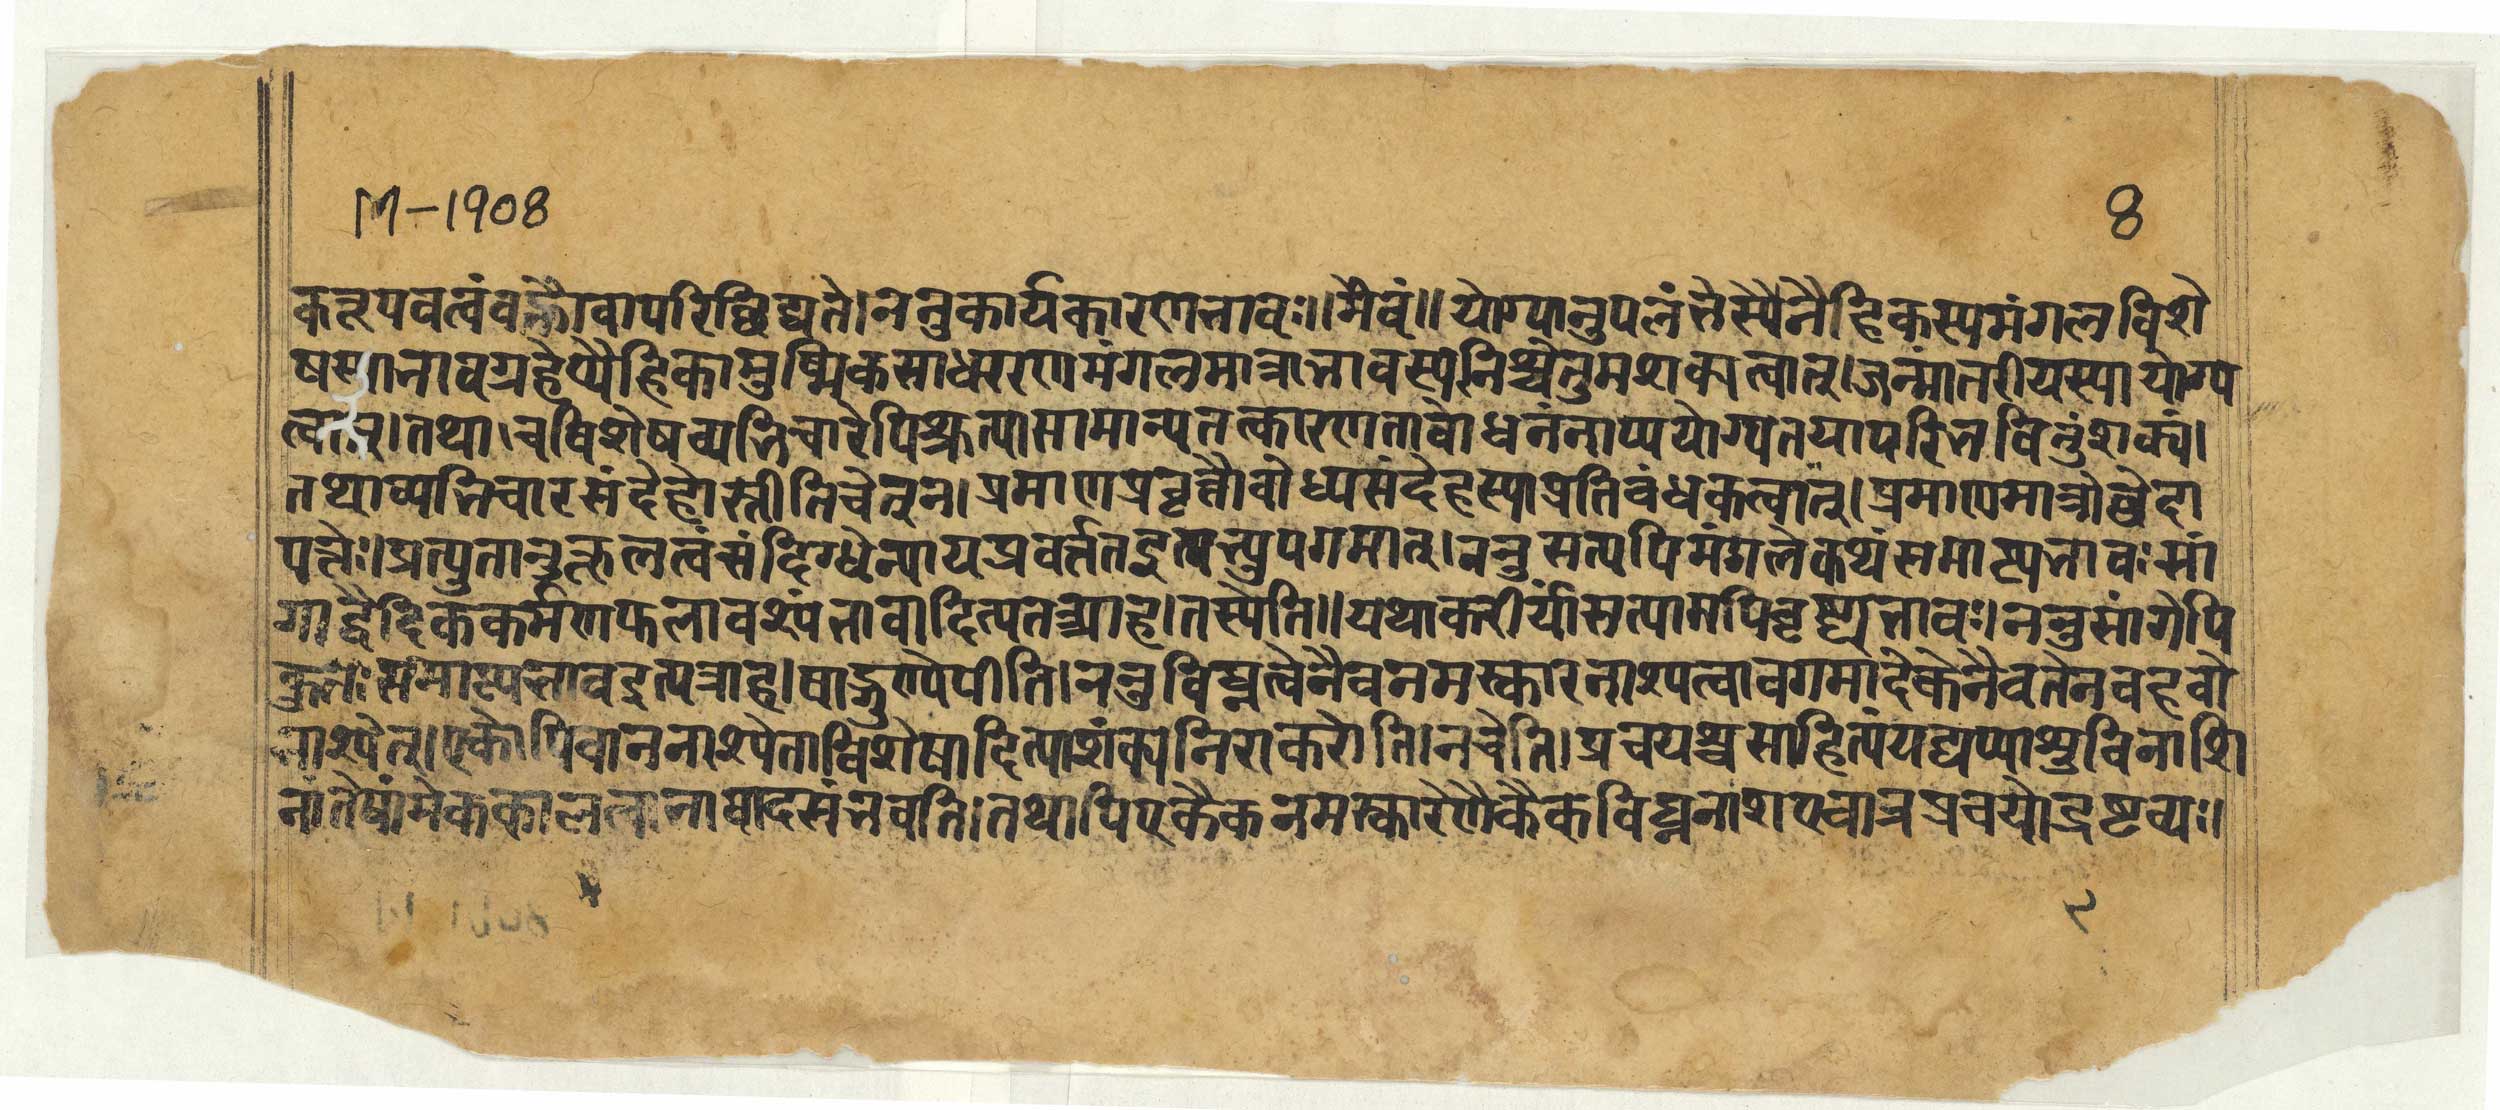 M-1908
8
कत्रूपवत्वंवक्तौवापरिछिद्यते।ननुकार्यकारणभावः॥मैवं॥योग्यानुपलंभेस्यैनैहिकस्यमंगलविशे
षस्याभावग्रहेप्यैहिकामुष्मिकसाधारणमंगलमात्राभावस्यनिश्चेतुमशक्यत्वात्।जन्मांतरीयस्यायोग्य
त्वात्।तथा।चविशेषव्यभिचारेपिश्रुत्यासामान्यतत्कारणताबोधनंनाप्ययोग्यतयापरिभवितुंशक्यं।
तथाव्यभिचारसंदेहोस्तीतिचेत्न।प्रमाणप्रवृत्तौबोध्यसंदेहस्याप्रतिबंधकत्वात्।प्रमाणमात्रोछेदा
पत्तेः।प्रत्युतानुकूलत्वंसंदिग्धेन्यायप्रवर्ततइत्यभ्युपगमात्।ननुसत्यपिमंगलेकथंसमाप्त्यभावःसां
गाद्वैदिककर्मणफलावश्यंभावादित्यतआह।तस्येति॥यथाकरीर्यांसत्यामपिवृष्ट्यभावः।ननुसांगेपि
कुतःसमाप्त्यभावइत्यत्राह।षाड्गुण्येपीति।ननुविघ्नत्वेनैवनमस्कारनाश्यत्वावगमादेकेनैवतेनबहवो
नाश्येत्।एकोपिवाननाश्येताविशेषादित्याशंक्यनिराकरोति।नचेति।प्रचयश्चसाहित्यंयद्यप्याशुविनाशि
नांतेषांमेककालत्वानाषादसंभवति।तथापिएकैकनमस्कारेणैकैकविघ्ननाशएवात्रप्रचयोद्रष्टव्यः॥
२